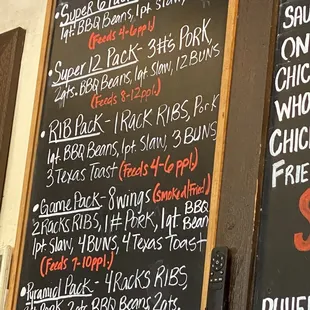 Super 6 Pack -
1qt. BBQ Beans, 1pt Slaw
(Feeds 4-6ppl)
Super 12 Pack - 3#'s PORK
2qts. BBQ Beans, 1qt Slaw, 12 BUNS
(Feeds 8-12ppl.)
RIB PACK - 1 RACK RIBS, Pork
1qt. BBQ Beans, 1pt. Slaw, 3 BUNS
3 Texas Toast (Feeds 4-6ppl.)
Game Pack - 8 wings (Smoked/Fried)
2 RACKS RIBS, 1# PORK, 1qt. BBQ Bean
1pt Slaw, 4 BUNS, 4 Texas TOAST
(Feeds 7-10ppl.)
Pyramid Pack - 4 RACKS RIBS,
Pork, 2qts BBQ Beans, 2qts.
SAU
ON
CHIC
WHO
CHIC
FRIE
S
BUFF